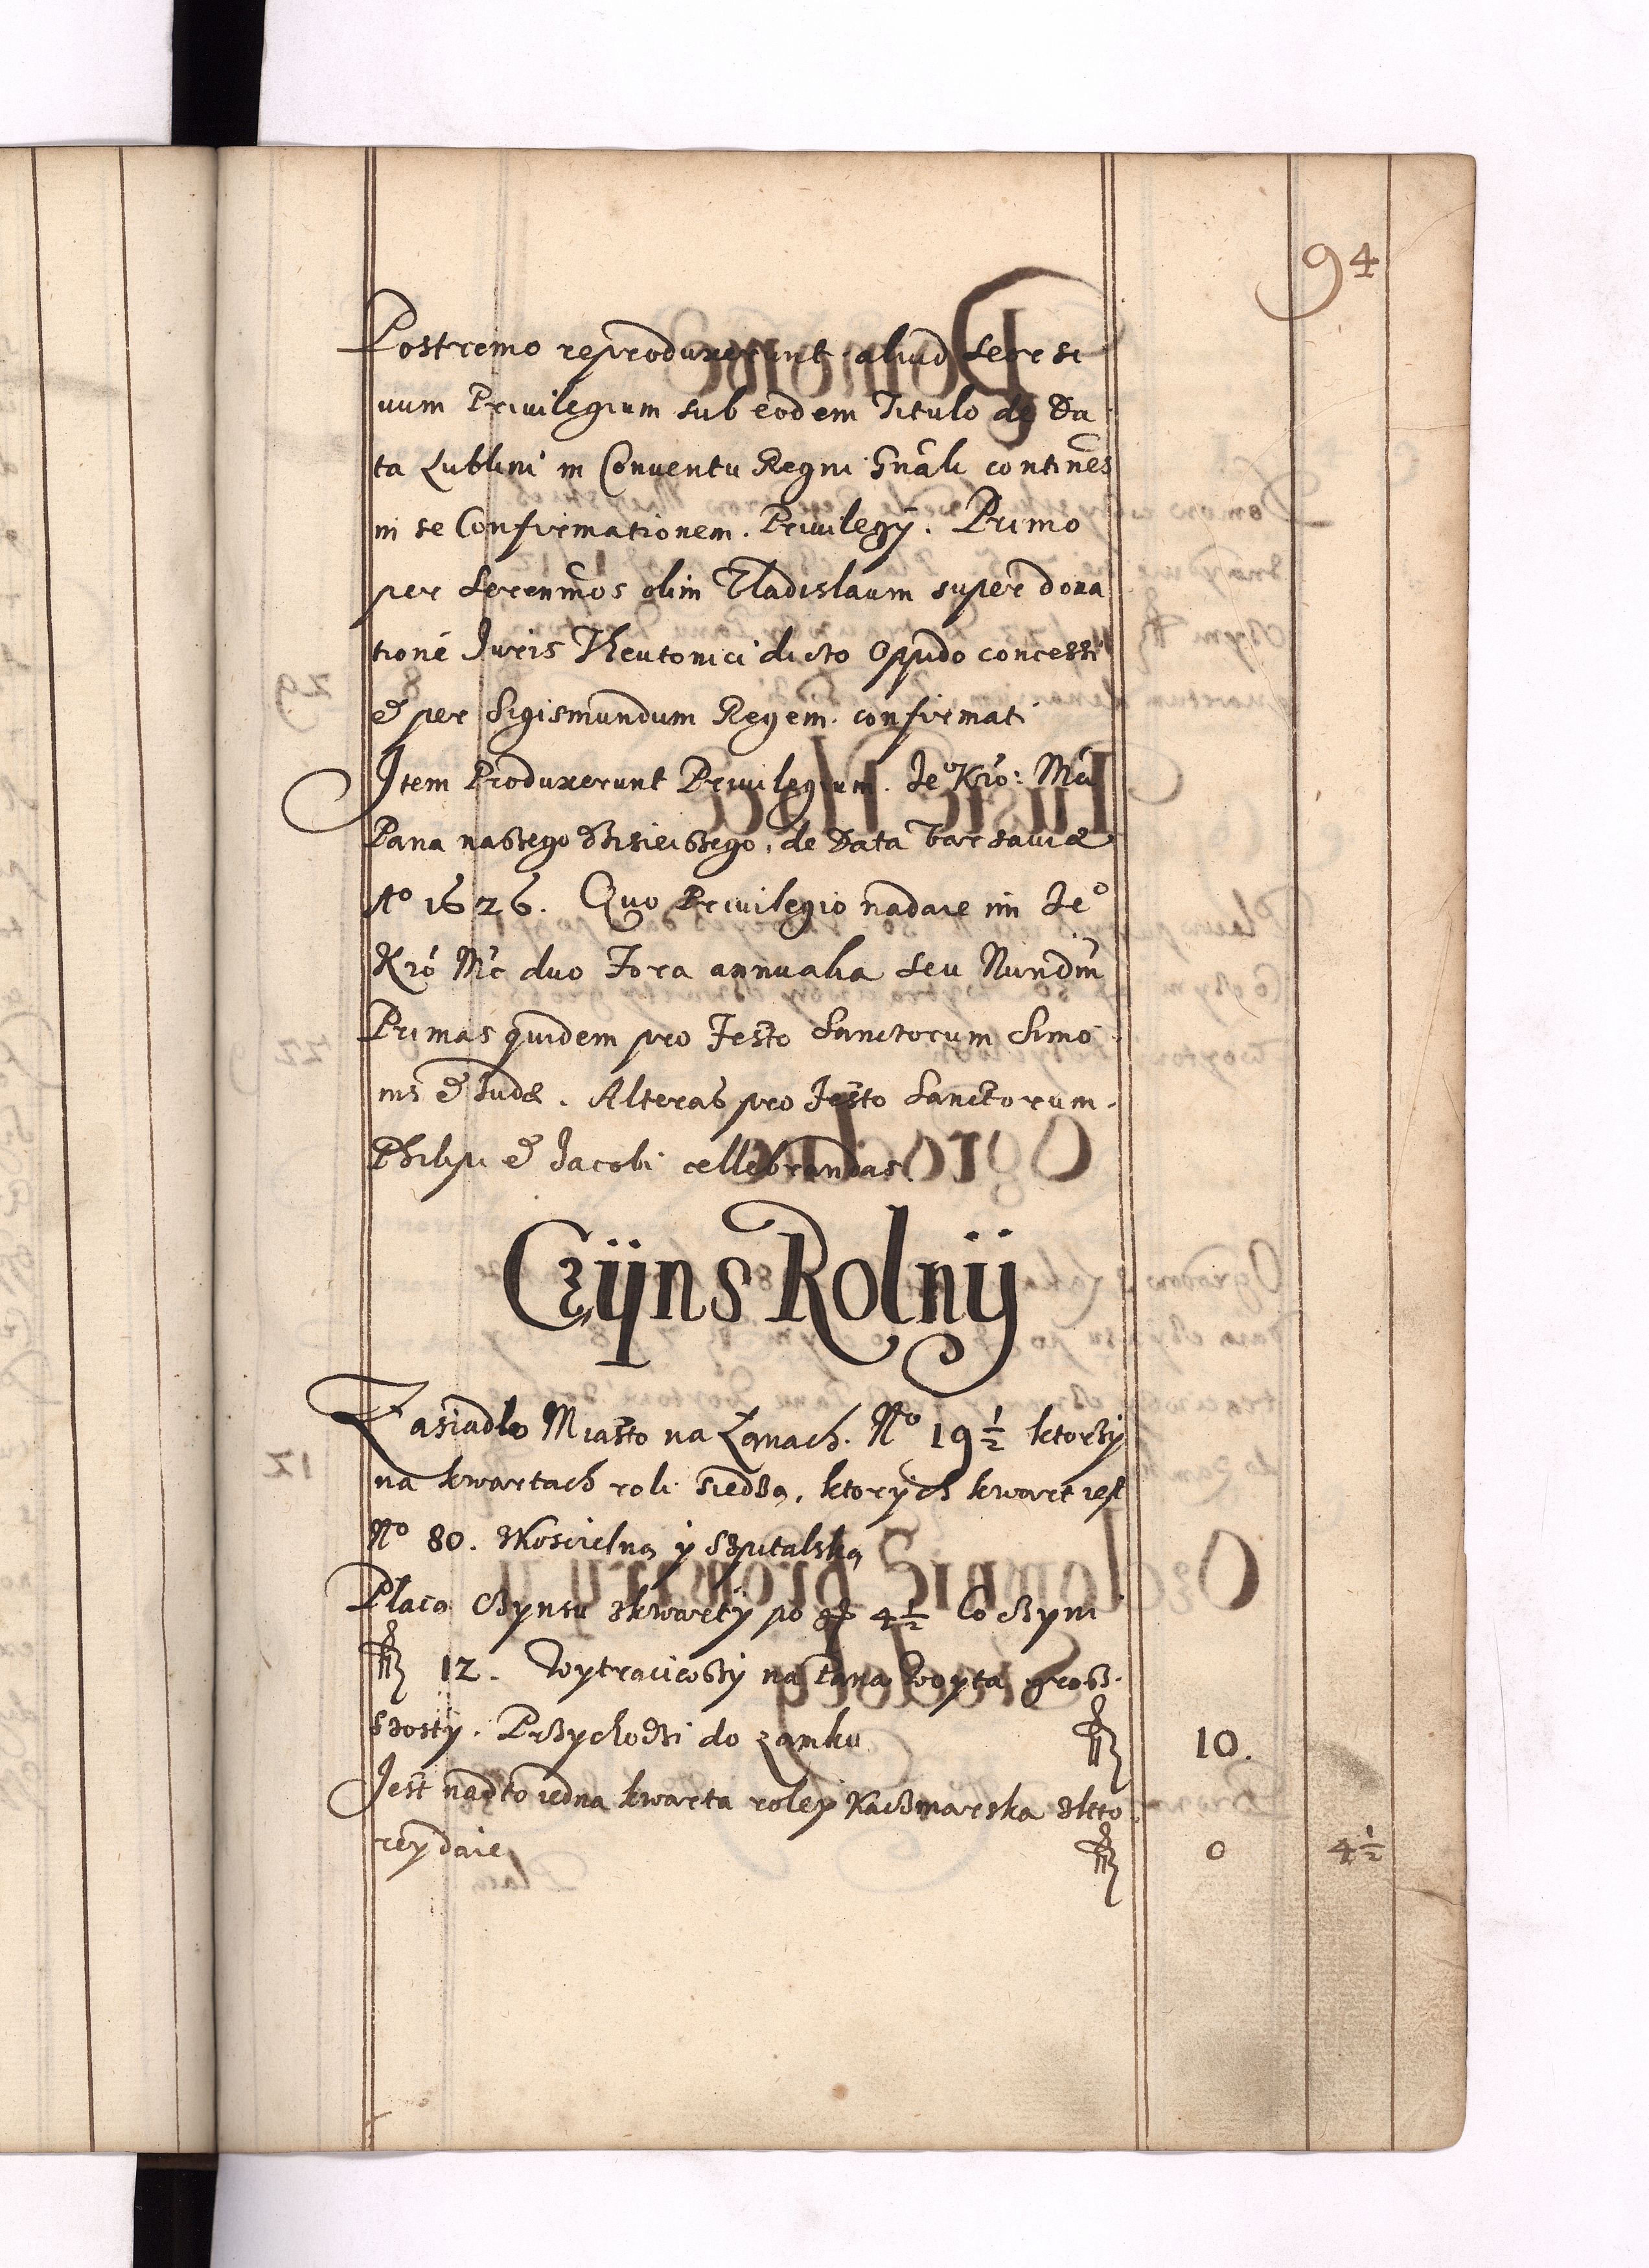 94
Postremo reproduxerunt aliud Seorsi
uum Priuilegium sub eodem Titulo de Da
ta Lublini in Conuentu Regni Gnãli continẽs
in se Confirmationem. Priuilegÿ. Primo
per Serenmos olim Vladislaum super dona
tionē Juris Theutonici dicto Oppido concessi
& per Sigismundum Regem. confirmati
Jtem Produxerunt Priuilegium. Je° Kró: Mći
Pana naszego dzisieiszego, de Data Varsauiæ
A° 1626. Quo Priuilegio nadaie im Je°
Kró Mć duo Fora annualia seu Nundin
Primas quidem pro Festo Sanctorum Simo
nis & Judæ. Alteras pro Festo Sanctorum.
Philipi & Jacobi cellebrandas.
Czÿns Rolnÿ
Zasiadło Miasto na Łanach. N° 19 ½ ktorzÿ
na kwartach roli siedzą, ktorÿch kwart iest
N° 80. zKoscielną ÿ Szpitalską
Płacą Czynsu zkwartÿ po gr 4 ½ Co czyni
fl 12. Wytraciwszÿ na Pana Woyta grosz
szostÿ. Przychodzi do zamku fl 10.
Jest nadto iedna kwarta roleÿ Kaczmarska zkto
reÿ daie fl 0 4 ½